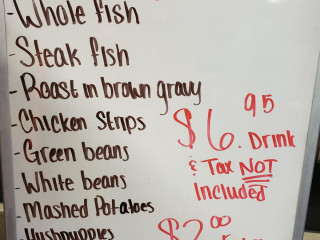 - Whole fish
- Steak fish
- Roast in brown gravy
- Chicken Strips
- Green beans
- White beans
- Mashed Potatoes
- Hushpuppies
$6.95 Drink
& Tax NOT
Included
$2.00